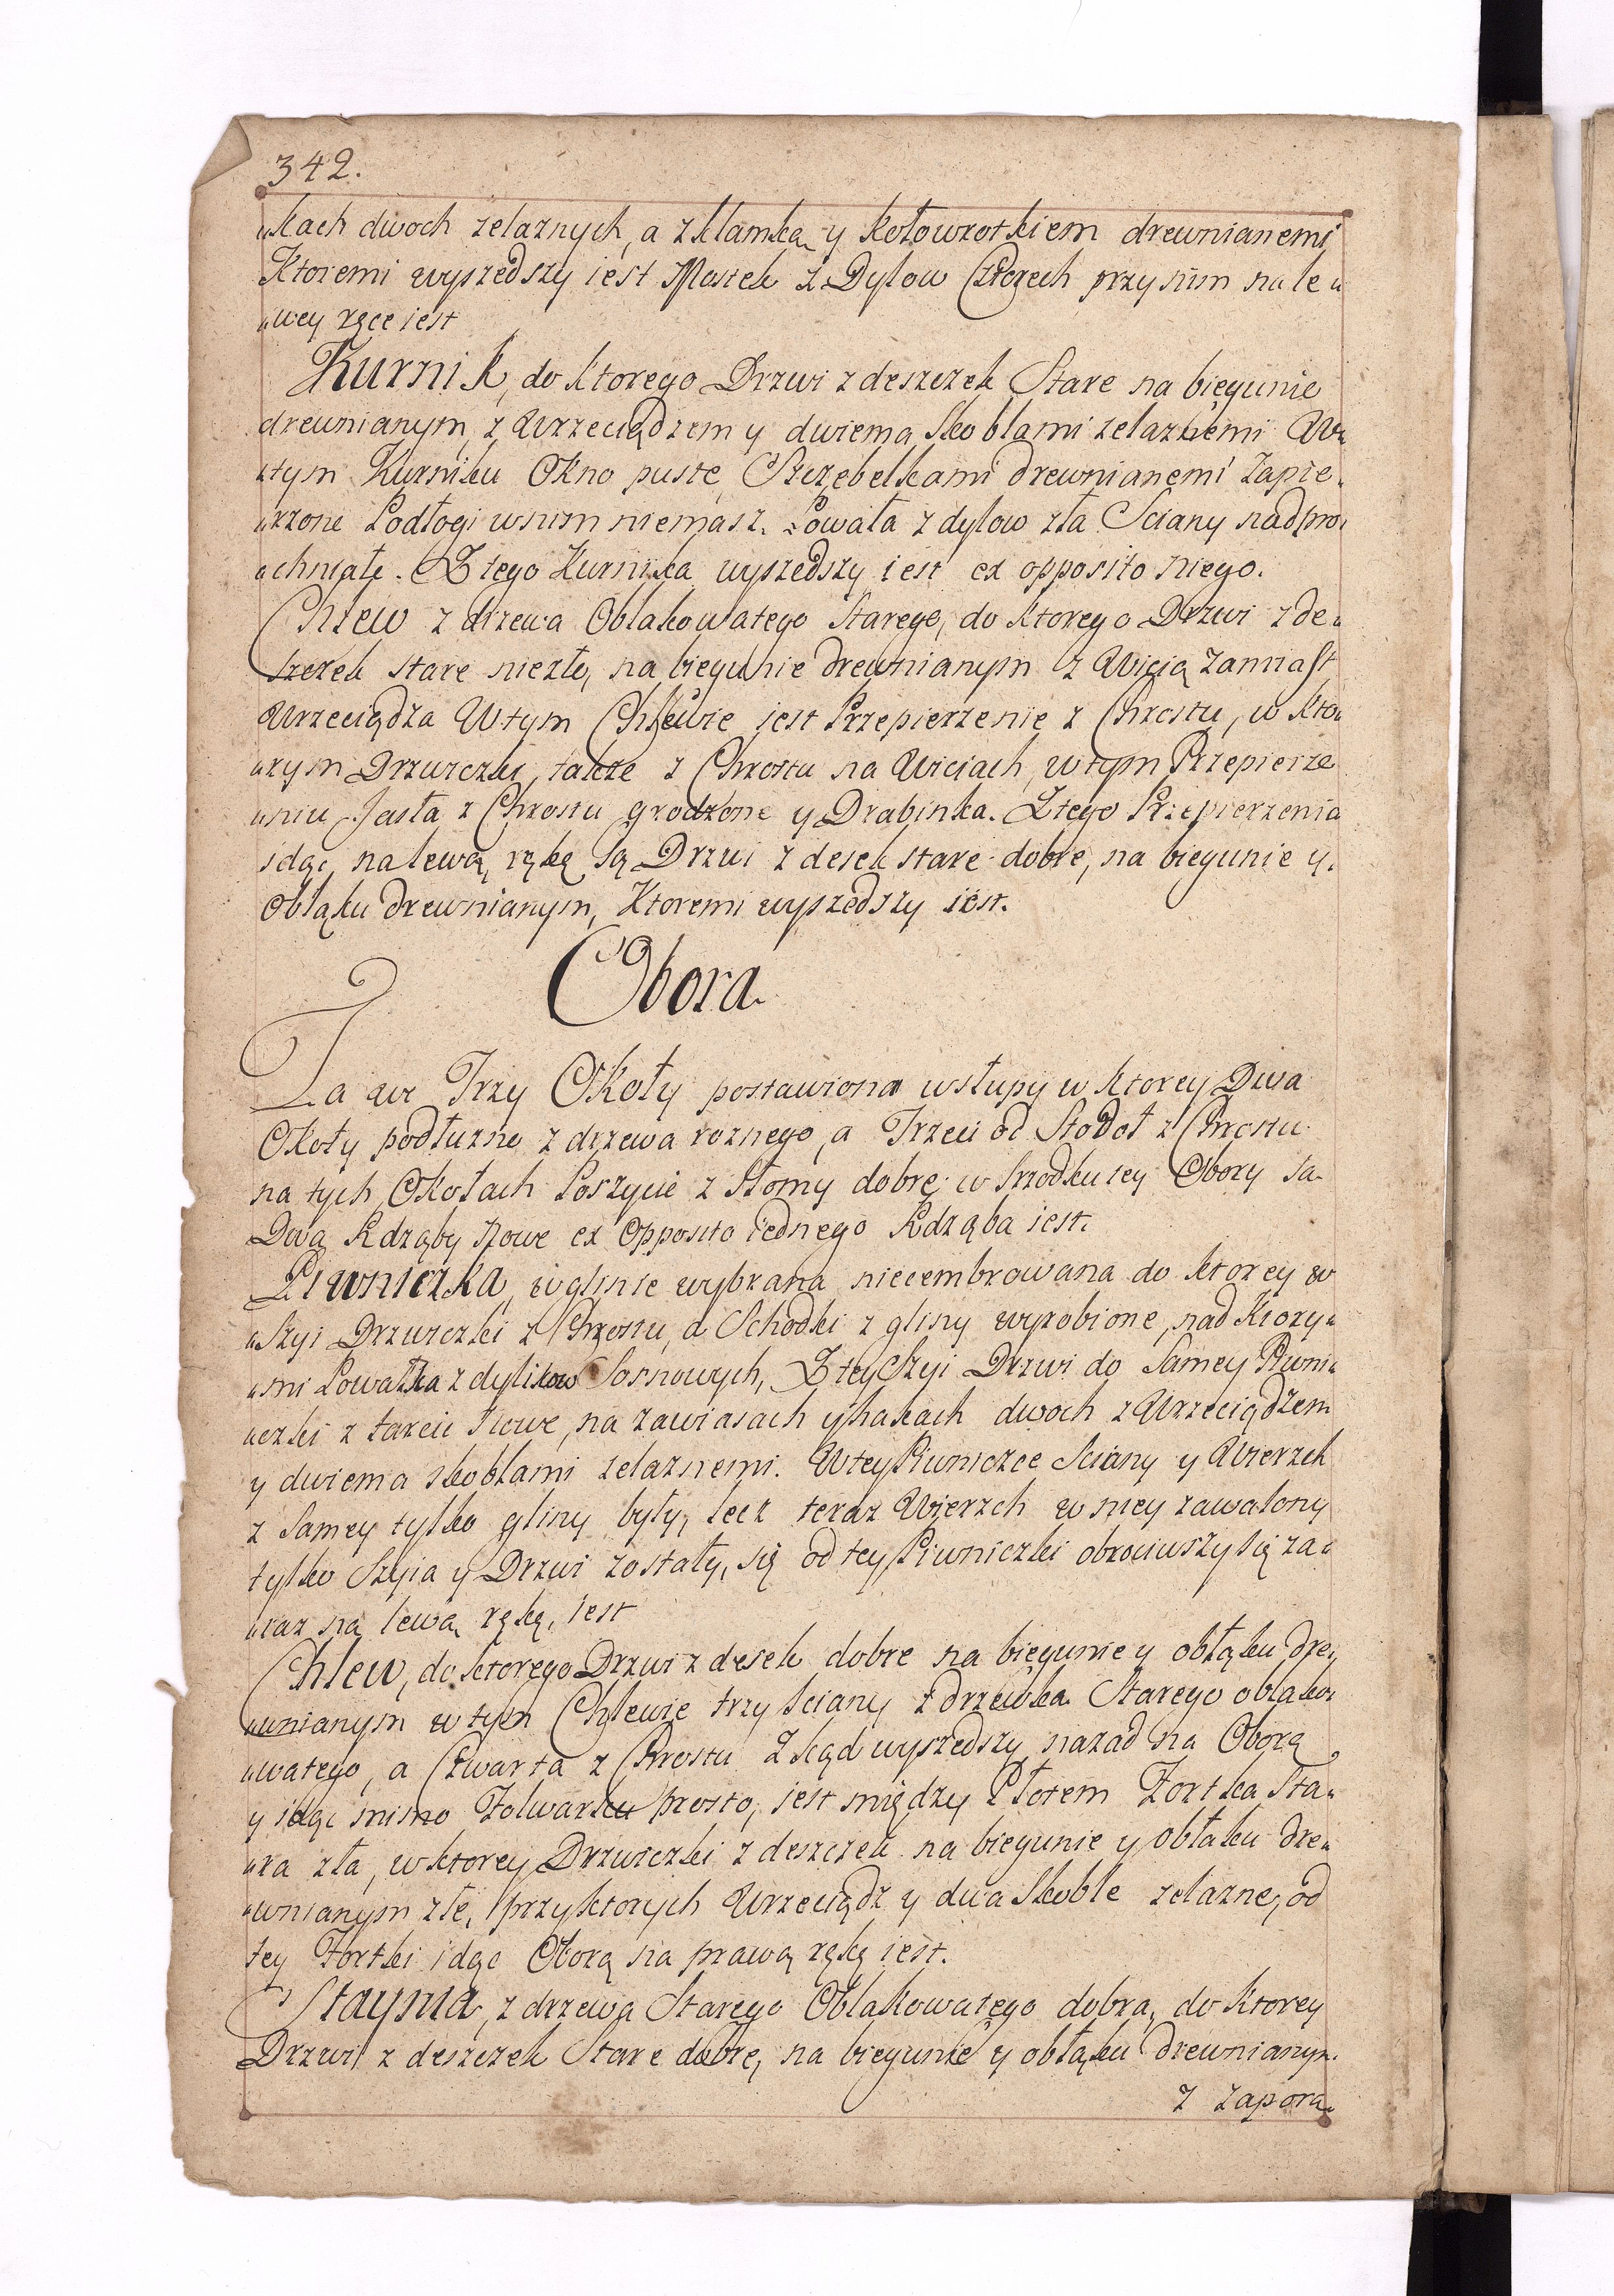 342.
„kach dwoch zelaznych, a z klamką y kołowrotkiem drewnianemi
Ktoremi wyszedszy iest Mostek z Dylow Czterech przy nim na le„
„wey ręce iest
Kurnik, do ktorego Drzwi z deszczek Stare na biegunie
drewnianym, z Wrzeciądzem y dwiema Skoblami zelaznemi W
„tym Kurniku Okno puste, Szczebelkami drewnianemi zapie„
„rzone Podłogi w nim niemasz. Powała z dylow zła Sciany nadpro„
„chniałe. Z tego Kurnika wyszedszy iest ex opposito niego.
Chlew z drzewa Oblakowatego Starego, do ktorego Drzwi z de„
szczek stare niezłe, na biegunie drewnianym z Wicią zamiast
Wrzeciądza W tym Chlewie jest Przepierzenie z Chrostu, w kto„
„rym Drzwiczki, także z Chrostu na Wiciach, w tym Przepierze
„niu Jasła z Chrostu grodzone y Drabinka. Z tego Przepierzenia
idąc na lewą rękę są Drzwi z desek stare dobre, na biegunie y
Obłąku drewnianym, Ktoremi wyszedszy iest.
Obora.
Ta we Trzy Okoły postawiona w słupy w ktorey Dwa
Okoły podłużne z drzewa roznego, a Trzeci od Stodoł z Chrostu
na tych Okołach Poszycie z Słomy dobre w srzodku tey Obory są
Dwa Rdząby Nowe ex Opposito iednego Rdząba iest.
Piwniczka, w glinie wybrana niecembrowana do ktorey w
„szyi Drzwiczki z Chrostu, a Schodki z gliny wyrobione, nad Ktory„
„mi Powałka z dylikow Sosnowych, Z tey Szyi Drzwi do Samey Piwni„
„czki z tarcic Nowe, na zawiasach y hakach dwoch z Wrzeciądzem
y dwiema skoblami zelaznemi. W tey Piwniczce Sciany y Wierzch
z Samey tylko gliny były, lecz teraz Wierzch w niey zawalony
tylko Szyia y Drzwi zostały, się od tey Piwniczki obrociwszy się za„
„raz na lewą rękę, iest
Chlew, do ktorego Drzwi z desek dobre na biegunie y obłąku dre„
„wnianym w tym Chlewie trzy sciany z drzewka Starego oblako„
„watego, a Czwarta z Chrostu Zkąd wyszedszy nazad na Oborą
y idąc mimo Folwarku prosto, jest między Płotem Fortka Sta„
„ra zła, w ktorey Drzwiczki z deszczek na biegunie y obłaku dre„
„wnianym złe, przy ktorych Wrzeciądz y dwa Skoble zelazne, od
tey Fortki idąc Oborą na prawą rękę iest.
Staynia, z drzewa Starego Oblakowatego dobra, do Ktorey
Drzwi z deszczek Stare dobre, na biegunie y obłąku drewnianym.
z zaporą